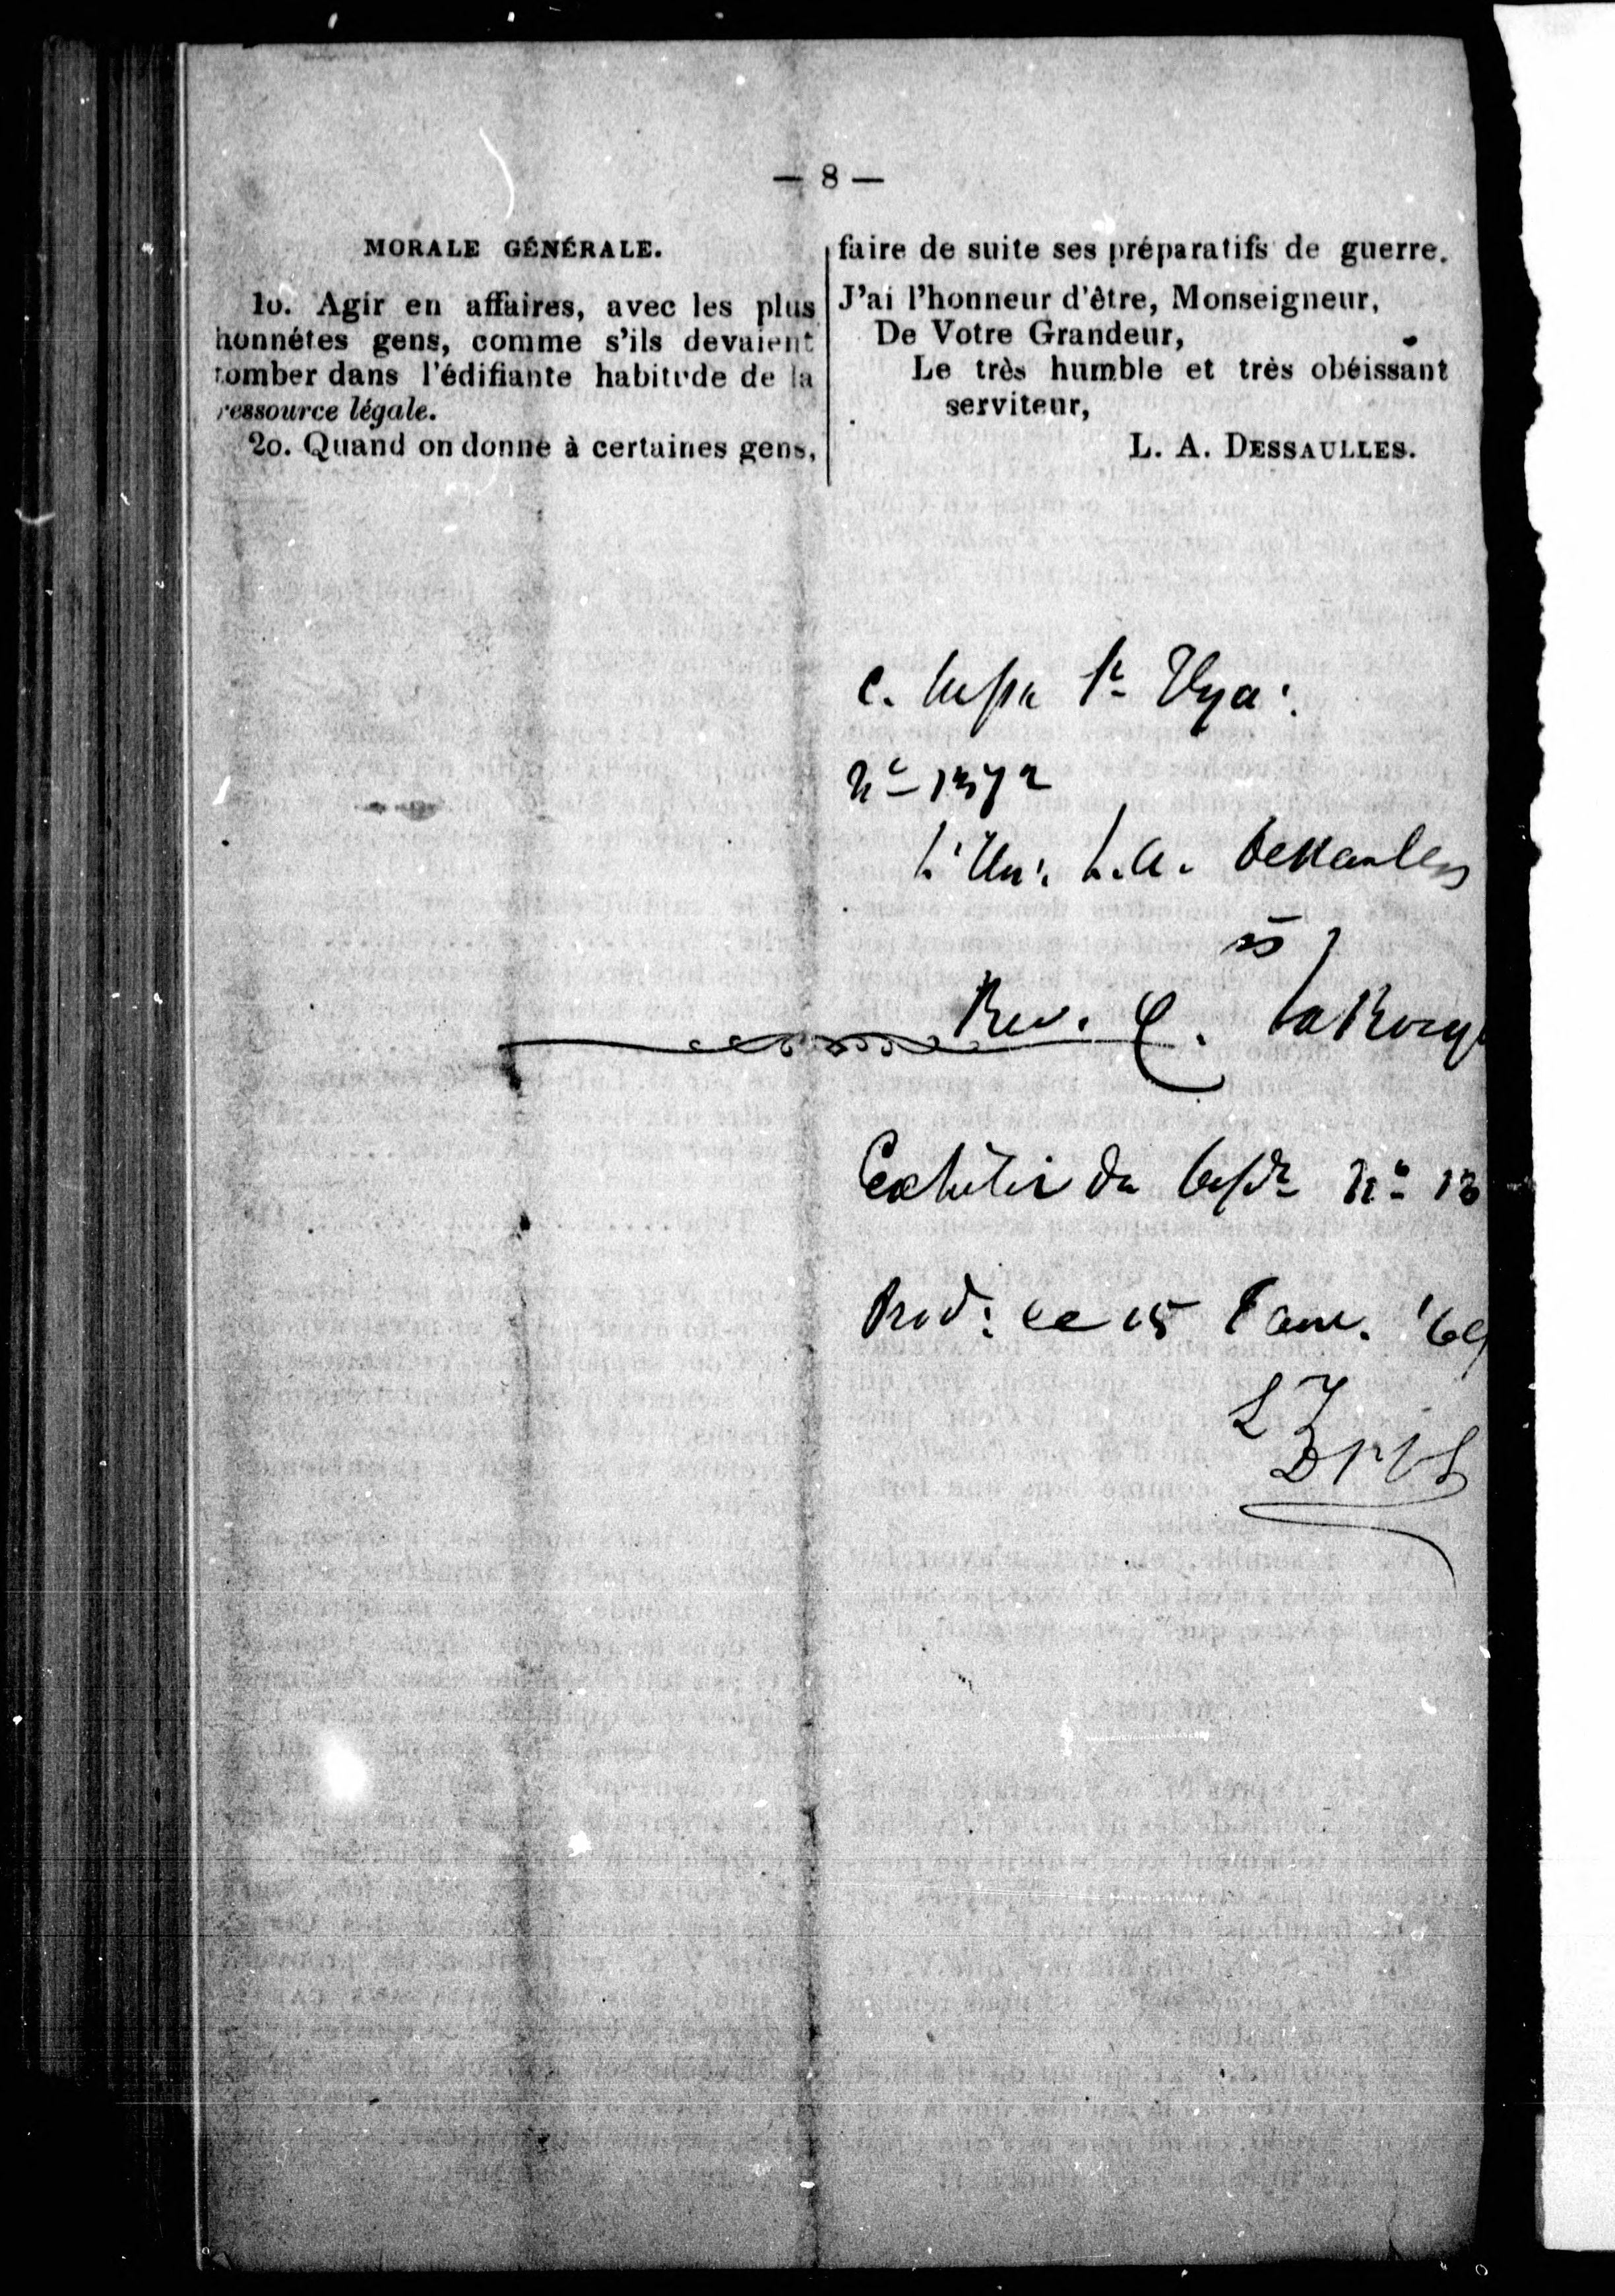 — 8 —
MORALE GÉNÉRALE.
1o. Agir en affaires, avec les plus
honnêtes gens, comme s'ils devaient
tomber dans l'édifiante habitude de la
ressource légale.
2o. Quand on donne à certaines gens,
faire de suite ses préparatifs de guerre.
J'ai l'honneur d'être, Monseigneur,
De Votre Grandeur,
Le très humble et très obéissant
serviteur,
L. A. DESSAULLES.
C. Supr St Hya:
No 1372
L'Hon: L. A. Dessaulles
vs
Rev. C. LaRocq
Exhibit du No 13
Prod: ce 15 Janv. '69